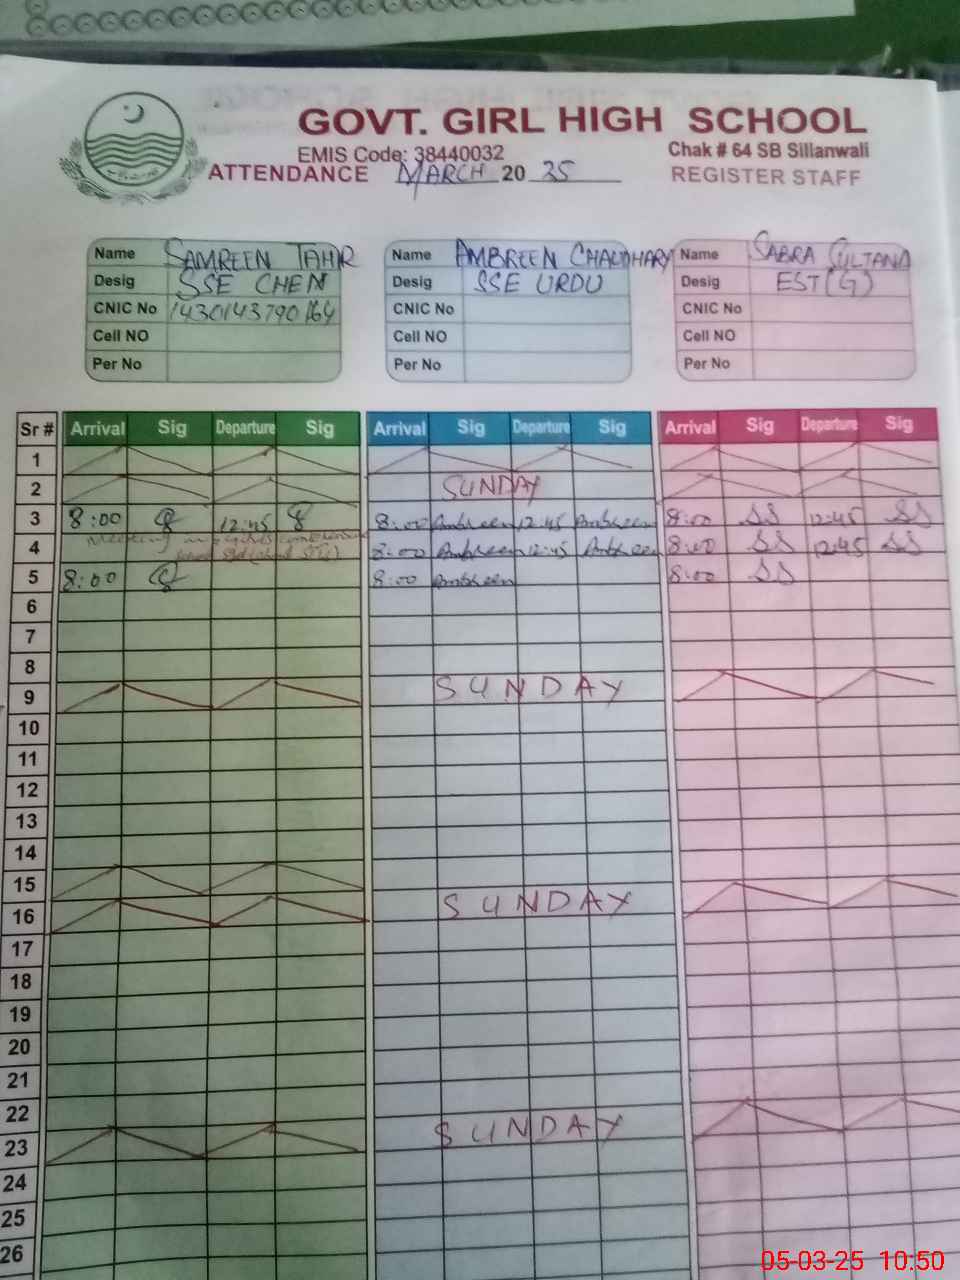 GOVT. GIRL HIGH SCHOOL
EMIS Code: 38440032 Chak # 64 SB Sillanwali
ATTENDANCE MARCH 20 25 REGISTER STAFF
Name SAMREEN TAHIR Name AMBREEN CHAUDHARY Name SABRA SULTANA
Desig SSE CHEM Desig SSE URDU Desig EST(G)
CNIC No CNIC No CNIC No
Cell NO Cell NO Cell NO
Per No Per No Per No
Sr # Arrival Sig Departure Sig Arrival Sig Departure Sig Arrival Sig Departure Sig
1
2 SUNDAY
3 8:00 12:45 8:00 Ambreen 12:45 Ambreen 8:00 SS 12:45 SS
4 Meeting 8:00 Ambreen 12:45 Ambreen 8:00 SS 12:45 SS
5 8:00 8:00 Ambreen 8:00 SS
6
7
8
9 SUNDAY
10
11
12
13
14
15
16 SUNDAY
17
18
19
20
21
22
23 SUNDAY
24
25
26
05-03-25 10:50